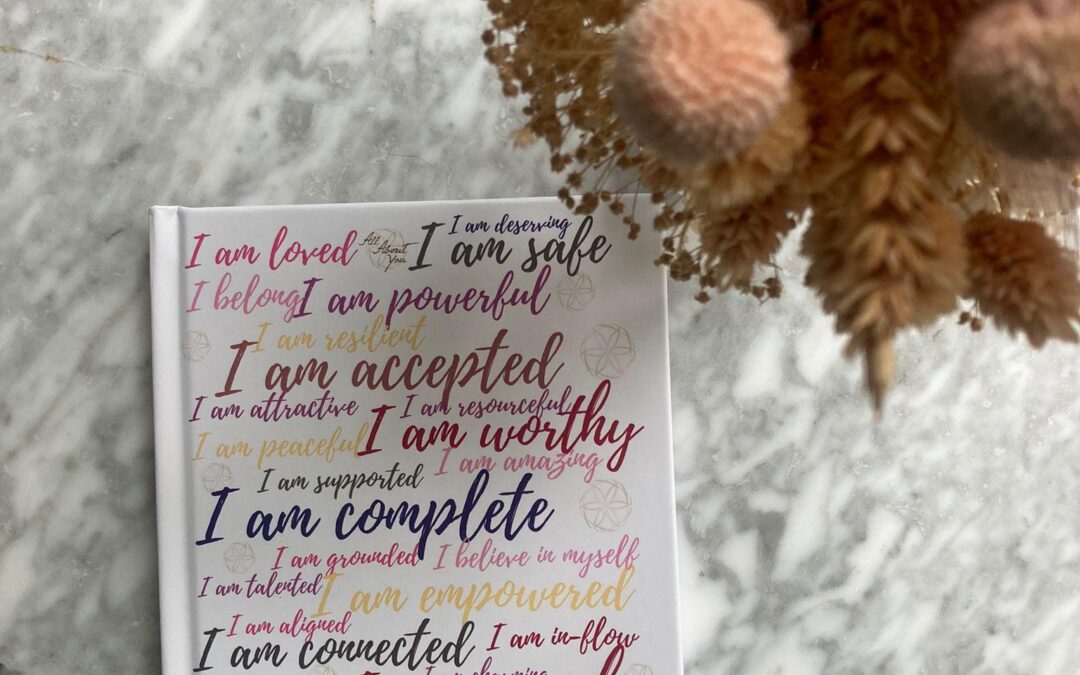 I am deserving
I am loved All About You I am safe
I belong I am powerful
I am resilient
I am accepted
I am attractive I am resourceful
I am peaceful I am worthy
I am amazing
I am supported
I am complete
I am grounded I believe in myself
I am talented I am empowered
I am aligned
I am connected I am in-flow
I am charming